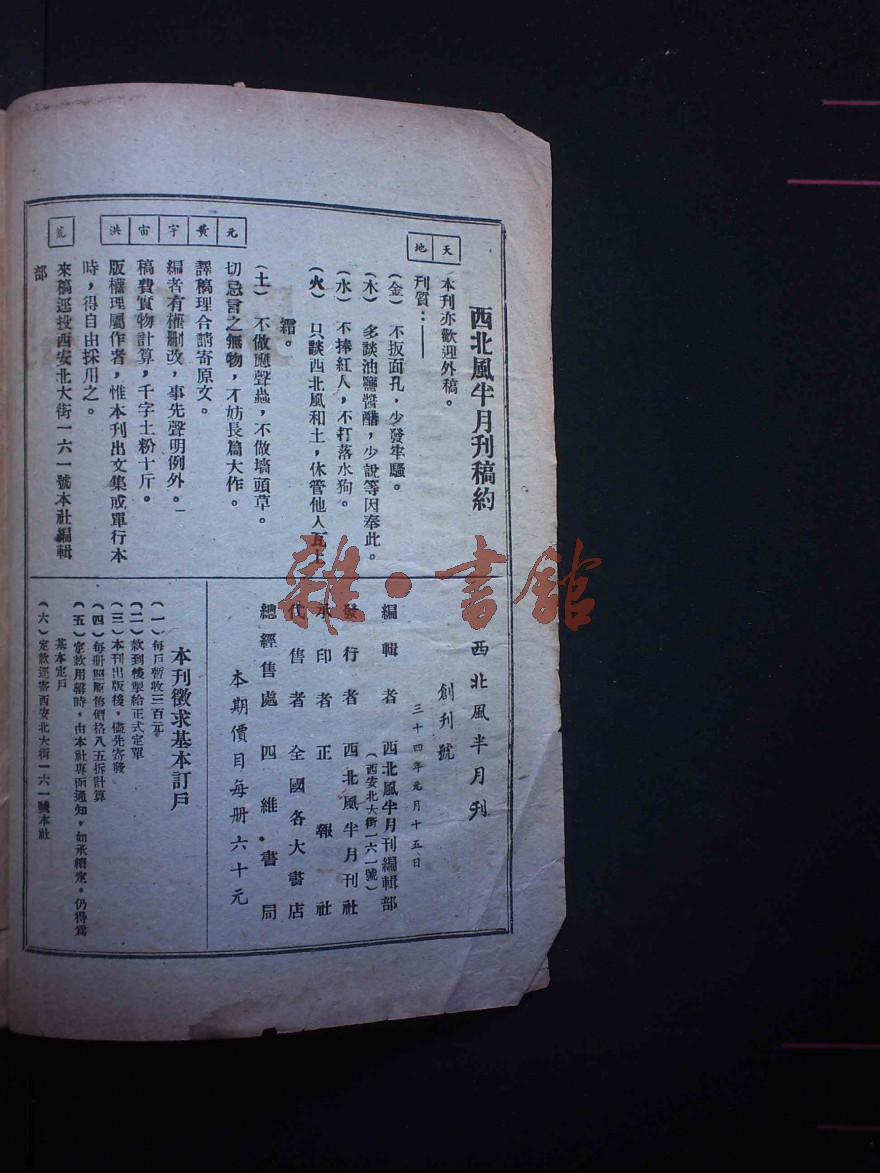 西北風半月刊稿約
天 本刊亦歡迎外稿。
地 刊質：——
(金) 不扳面孔，少發牢騷。
(木) 多談油鹽醬醋，少說等因奉此。
(水) 不捧紅人，不打落水狗。
(火) 只談西北風和土，休管他人瓦上
霜。
(土) 不做應聲蟲，不做墻頭草。
元 切忌言之無物，才妨長篇大作。
黃 譯稿理合請寄原文。
宇 編者有權删改，事先聲明例外。
宙 稿費實物計算，千字土粉十斤。
洪 版權理屬作者，惟本刊出文集或單行本
時，得自由採用之。
荒 來稿逕投西安北大街一六一號本社編輯
部
西北風半月刊
創刊號
三十四年元月十五日
編輯者 西北風半月刊編輯部
(西安北大街一六一號)
發行者 西北風半月刊社
承印者 正報社
代售者 全國各大書店
總經售處 四維書局
本期價目每册六十元
本刊徵求基本訂戶
(一) 每戶暫收三百元。
(二) 款到後掣給正式定單
(三) 本刊出版後，儘先寄發
(四) 每册照原售價格八五拆計算
(五) 定款用罄時，由本社專函通知，如承續定，仍得爲
基本定戶
(六) 定款逕寄西安北大街一六一號本社
雜·書館